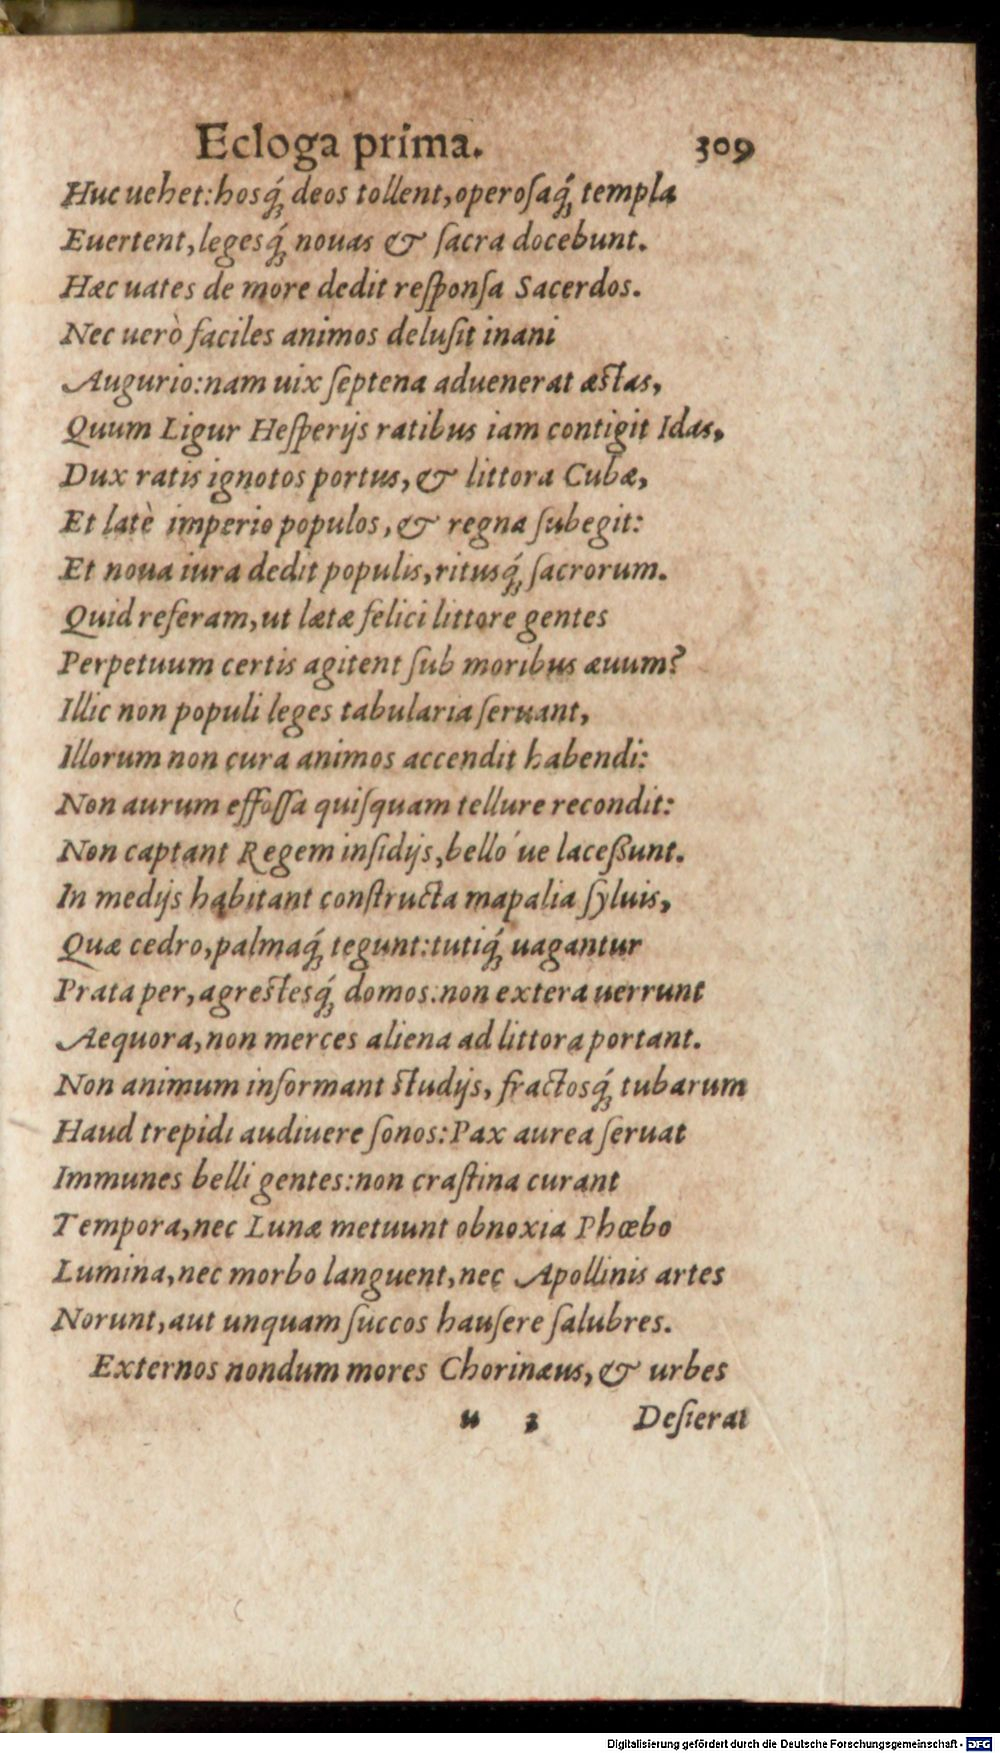 Ecloga prima. 309
Huc uehet: hosq́; deos tollent, operoſaq́; templa
Euertent, legesq́; nouas & ſacra docebunt.
Hæc uates de more dedit reſponſa Sacerdos.
Nec uerò faciles animos deluſit inani
Augurio: nam uix ſeptena aduenerat æſtas,
Quum Ligur Heſperijs ratibus iam contigit Idas,
Dux ratis ignotos portus, & littora Cubæ,
Et latè imperio populos, & regna ſubegit:
Et noua iura dedit populis, ritusq́; ſacrorum.
Quid referam, ut lætæ felici littore gentes
Perpetuum certis agitent ſub moribus æuum?
Illic non populi leges tabularia ſeruant,
Illorum non cura animos accendit habendi:
Non aurum effoſſa quiſquam tellure recondit:
Non captant Regem inſidijs, bello ́ue laceßunt.
In medijs habitant conſtructa mapalia ſyluis,
Quæ cedro, palmaq́; tegunt: tutiq́; uagantur
Prata per, agreſtesq́; domos: non extera uerrunt
Aequora, non merces aliena ad littora portant.
Non animum informant ſtudijs, fractosq́; tubarum
Haud trepidi audiuere ſonos: Pax aurea ſeruat
Immunes belli gentes: non craſtina curant
Tempora, nec Lunæ metuunt obnoxia Phœbo
Lumina, nec morbo languent, nec Apollinis artes
Norunt, aut unquam ſuccos hauſere ſalubres.
Externos nondum mores Chorinæus, & urbes
u 3 Deſierat
Digitalisierung gefördert durch die Deutsche Forschungsgemeinschaft - DFG